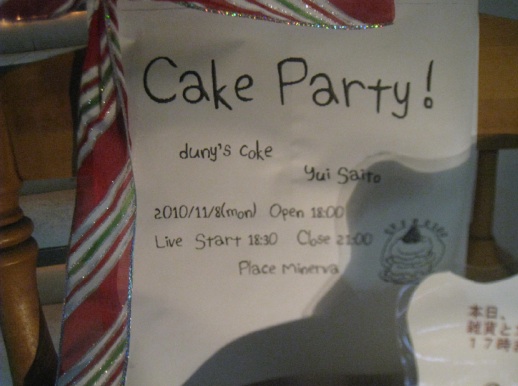 Cake Party!
duny's coke
Yui Saito
2010/11/8(mon) Open 18:00
Live Start 18:30 Close 21:00
Place Minerva
本日、
雑貨と
17時